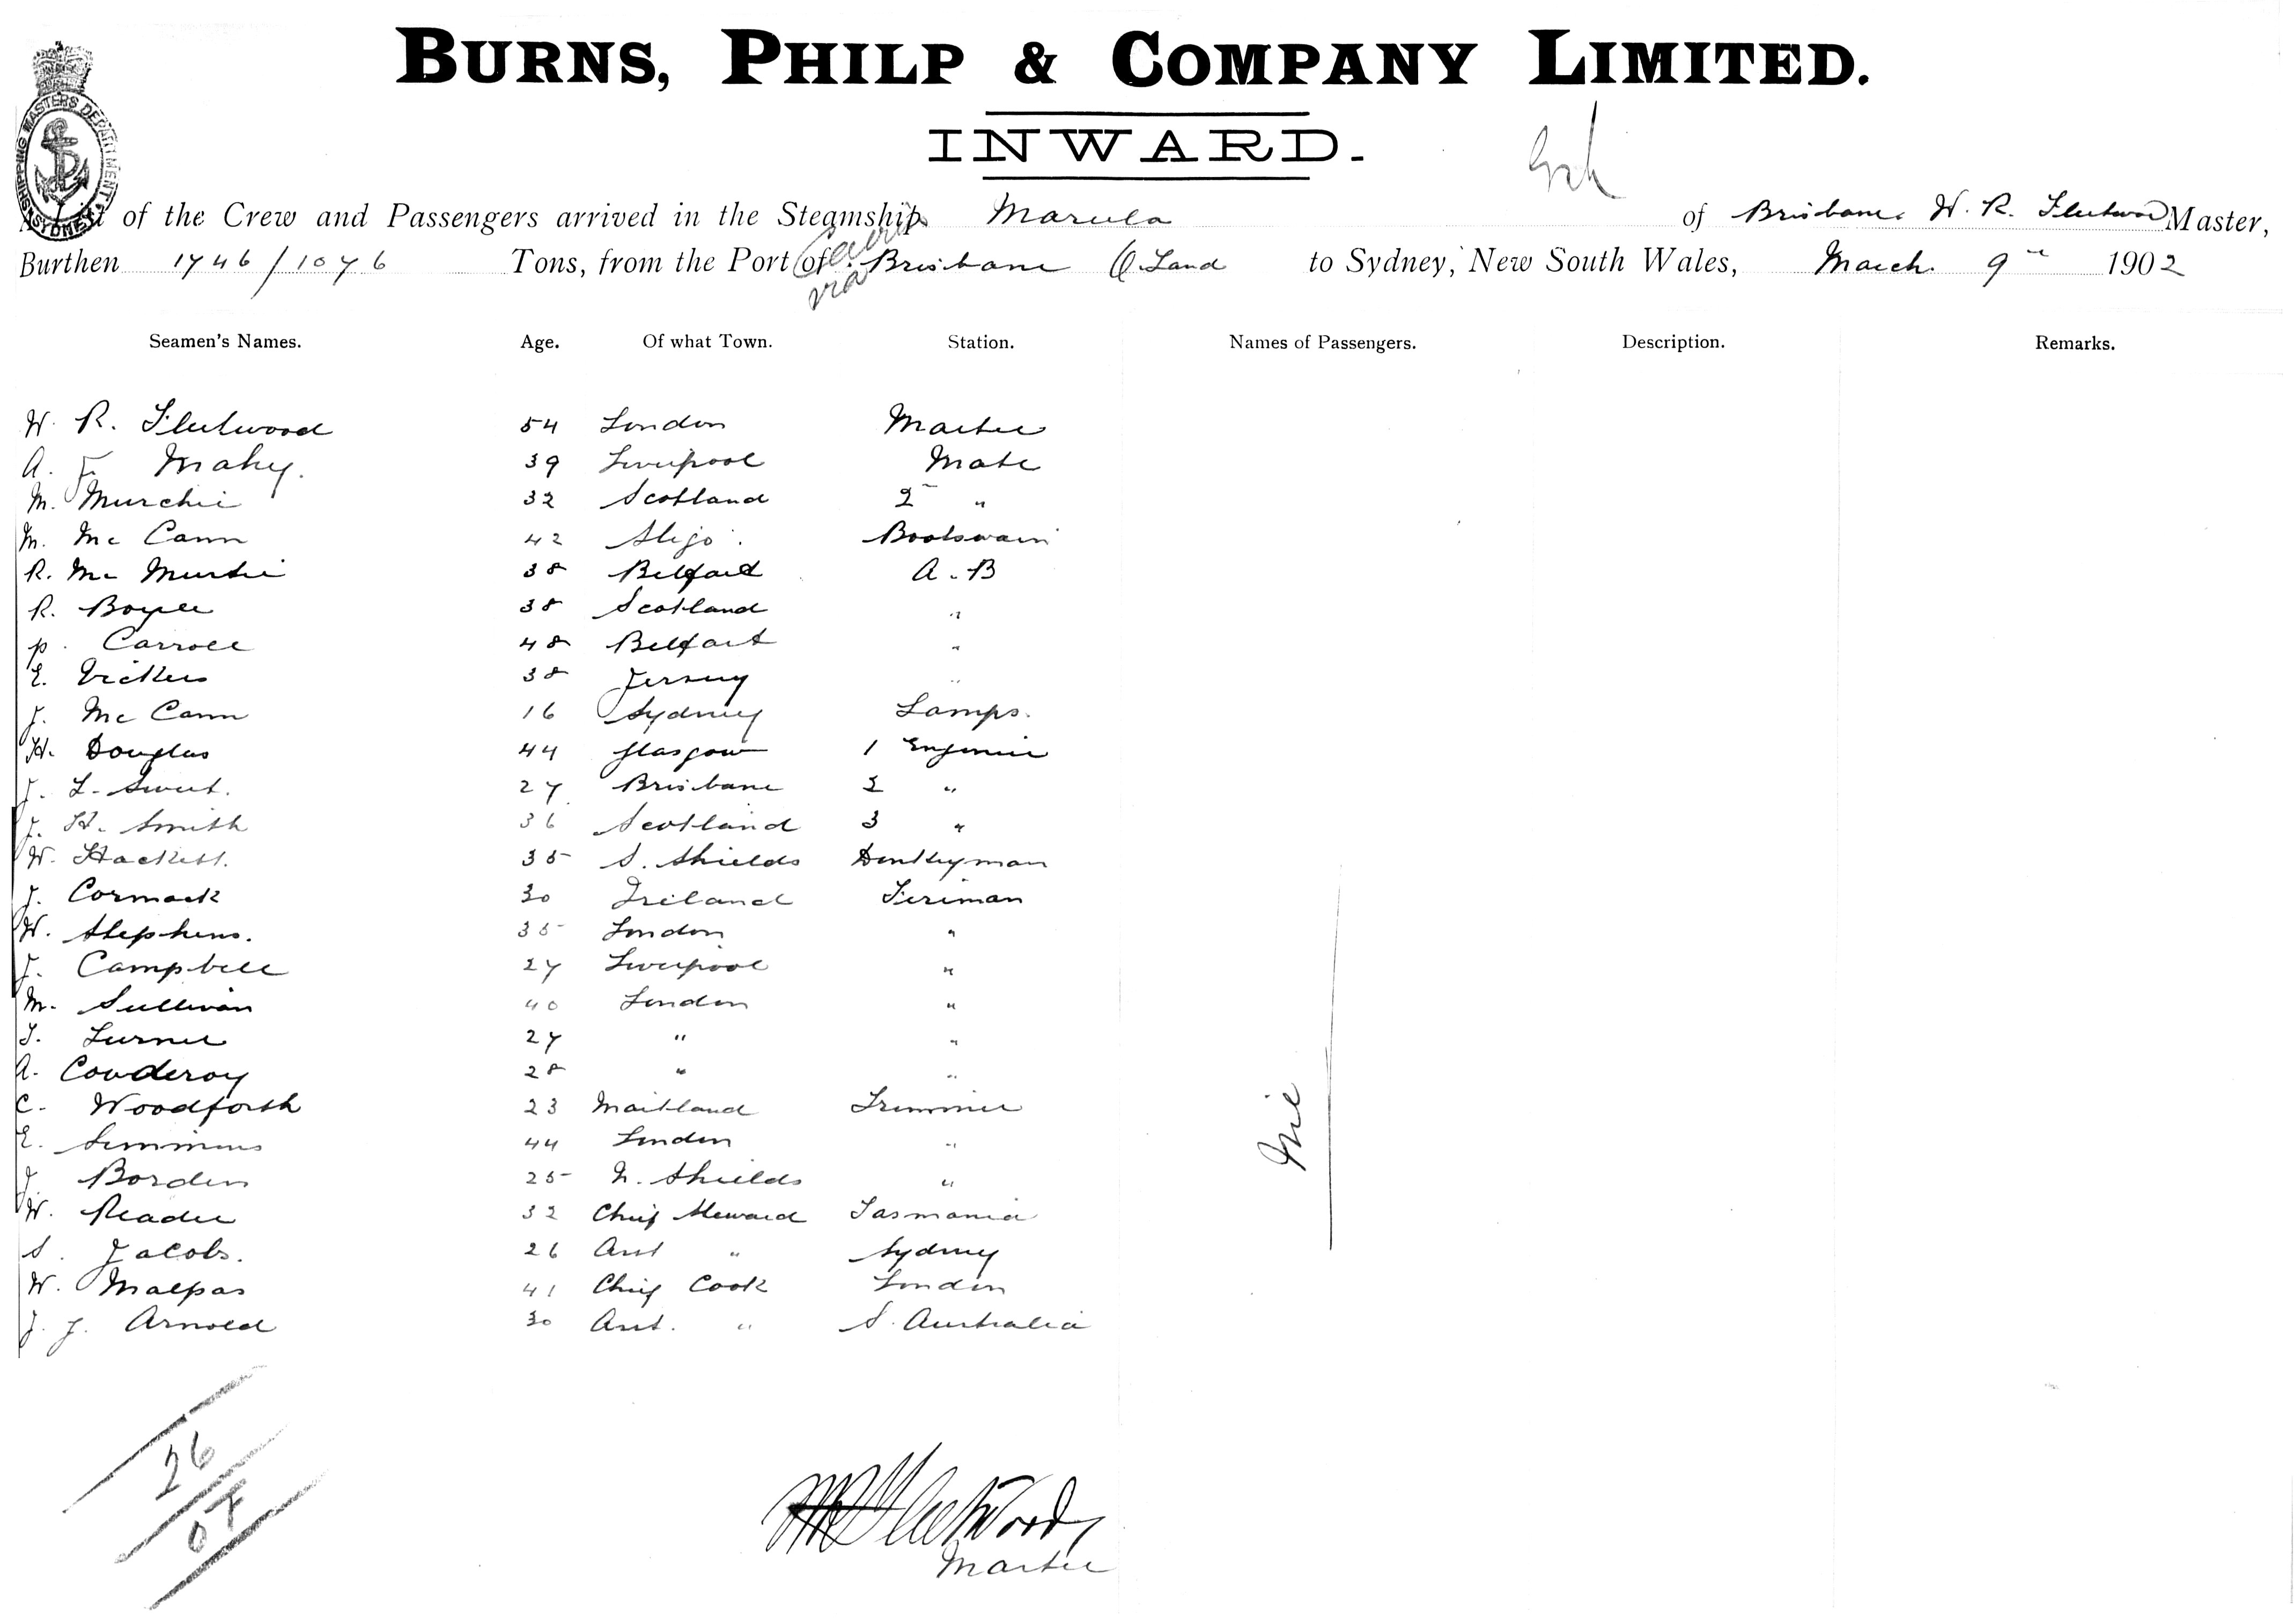 BURNS, PHILP & COMPANY LIMITED.
INWARD.
SHIPPING MASTERS DEPARTMENT SYDNEY
of the Crew and Passengers arrived in the Steamship Marula of Brisbane W. R. Fleetwood Master,
Burthen 1746/1076 Tons, from the Port of via Brisbane Q.Land to Sydney, New South Wales, March 9th 1902
Seamen's Names. Age. Of what Town. Station. Names of Passengers. Description. Remarks.
W. R. Fleetwood 54 London Master
A. F. Mahy. 39 Liverpool Mate
M. Murchie 32 Scotland 2 "
M. Mc Cann 42 Sligo Boatswain
R. Mc Murtie 38 Belfast A.B
R. Boyle 38 Scotland "
P. Carroll 48 Belfast "
E. Vickers 38 Jersey "
J. Mc Cann 16 Sydney Lamps.
H. Douglas 44 Glasgow 1 Engineer
J. L. Sweet. 27 Brisbane 2 "
J. H. Smith 36 Scotland 3 "
W. Hackett. 35 S. Shields Donkeyman
J. Cormack 30 Ireland Fireman
W. Stephens. 35 London "
J. Campbell 27 Liverpool "
M. Sullivan 40 London "
T. Turner 27 " "
A. Cowderoy 28 " "
C. Woodforth 23 Maitland Trimmer
E. Simmins 44 London "
J Borden 25 N. Shields "
W. Reader 32 Chief Steward Tasmania
S. Jacobs. 26 Asst " Sydney
W. Malpas 41 Chief Cook London
J. J. Arnold 30 Asst. " S. Australia
Nil
26
WR Fleetwood
Master